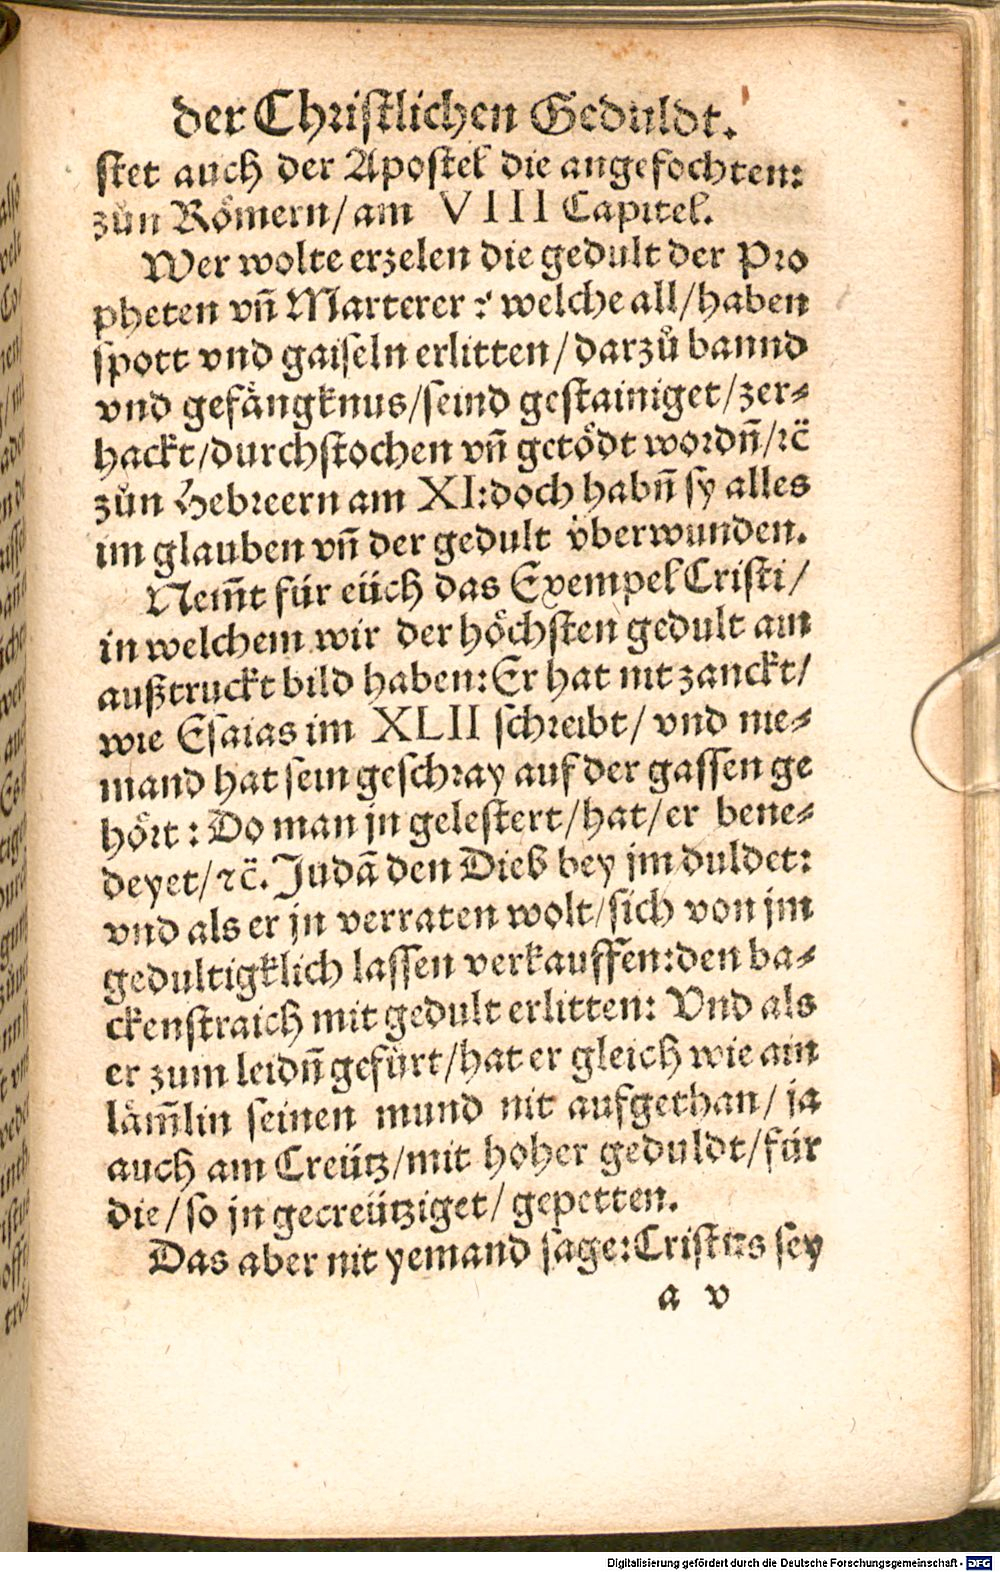 der Christlichen Geduldt.
stet auch der Apostel die angefochten:
zůn Römern/ am VIII Capitel.
Wer wolte erzelen die gedult der Pro
pheten vn̄ Marterer? welche all/ haben
spott vnd gaiseln erlitten/ darzů bannd
vnd gefängknus/ seind gestainiget/ zer⸗
hackt/ durchstochen vn̄ getödt wordn̄/ ꝛc̈
zůn Hebreern am XI: doch habn̄ sy alles
im glauben vn̄ der gedult v̈berwunden.
Nem̄t für eüch das Exempel Cristi/
in welchem wir der höchsten gedult am
außtruckt bild haben: Er hat nit zanckt/
wie Esaias im XLII schreibt/ vnd nie⸗
mand hat sein geschray auf der gassen ge
hört: Do man jn gelestert/ hat/ er bene⸗
deyet/ ꝛc̈. Judā den Dieb bey jm duldet:
vnd als er jn verraten wolt/ sich von jm
gedultigklich lassen verkauffen: den ba⸗
ckenstraich mit gedult erlitten: Vnd als
er zum leidn̄ gefürt/ hat er gleich wie ain
läm̄lin seinen mund nit aufgethan/ ja
auch am Creütz/ mit hoher geduldt/ für
die/ so jn gecreütziget/ gepetten.
Das aber nit yemand sage: Cristus sey
a v
Digitalisierung gefördert durch die Deutsche Forschungsgemeinschaft - DFG